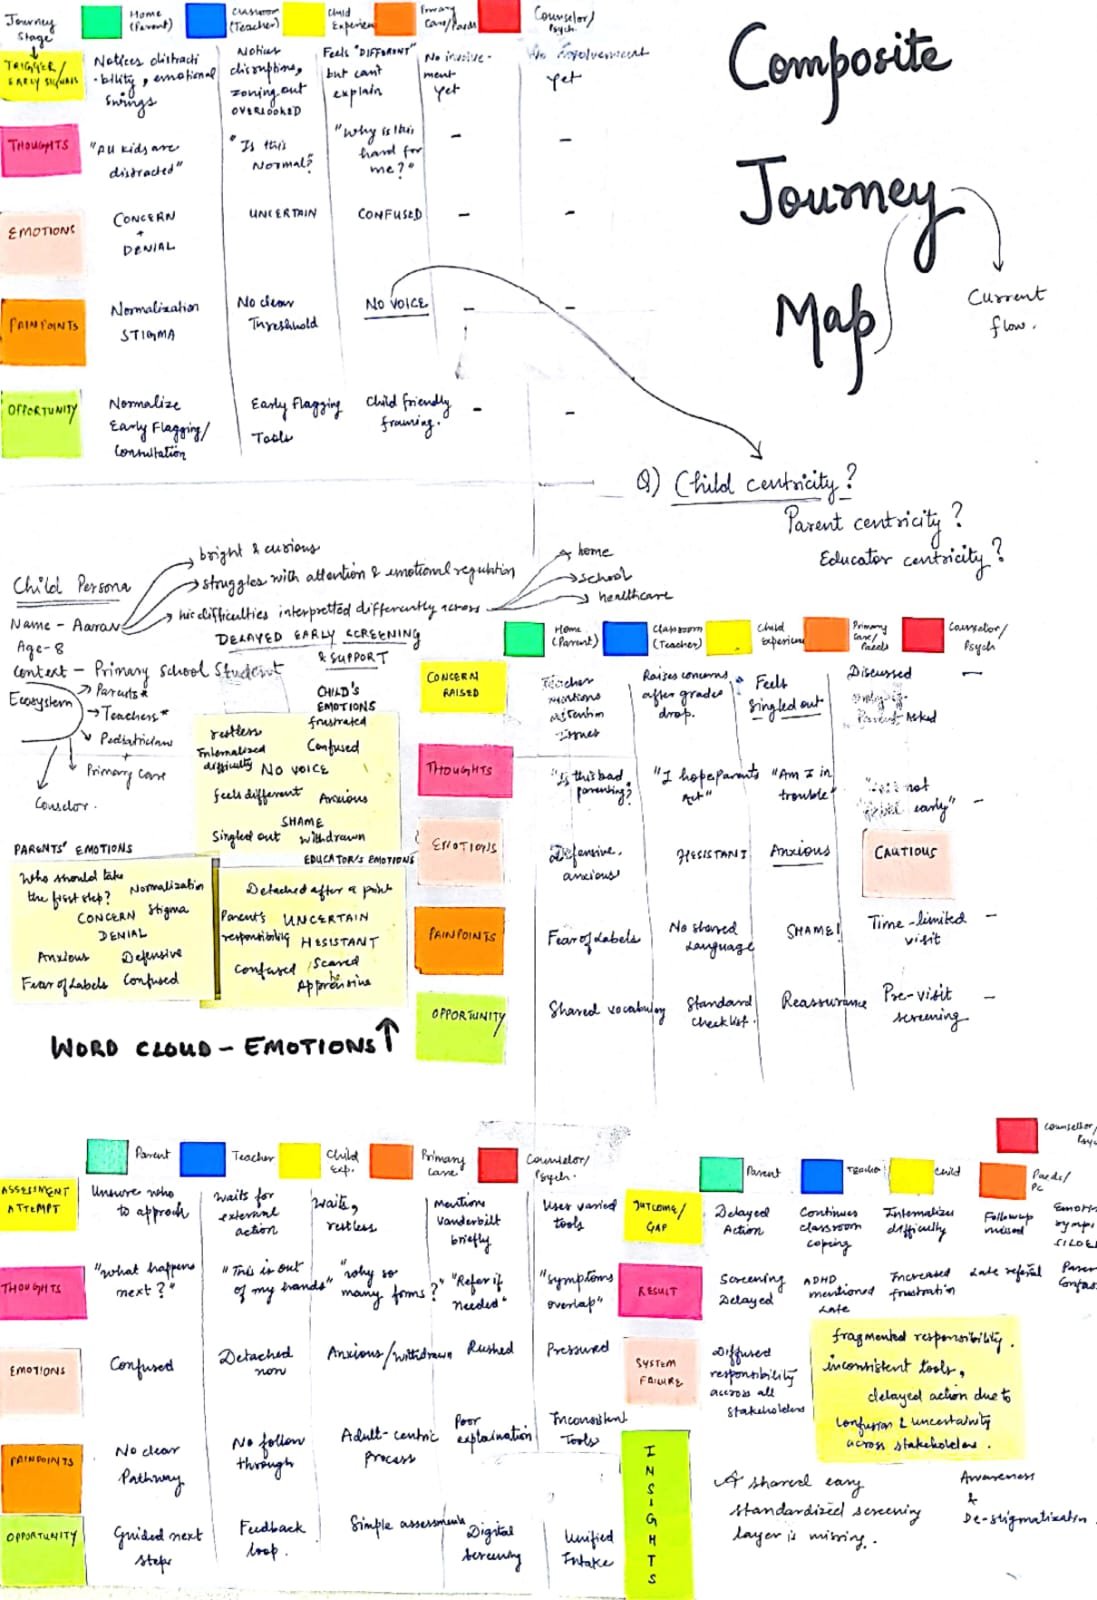 Composite
Journey
Map
Current
flow.
Journey
Stage
Home
(Parent)
Classroom
(Teacher)
Child
Experience
Primary
Care/Paeds
Counselor/
Psych.
TRIGGER/
EARLY SIGNALS
Notices distracti
-bility, emotional
swings
Notices
disruptions,
zoning out
OVERLOOKED
Feels "DIFFERENT"
but can't
explain
No involve-
ment
yet
No involvement
yet
THOUGHTS
"All kids are
distracted"
"Is this
Normal?"
"Why is this
hard for
me?"
-
-
EMOTIONS
CONCERN
+
DENIAL
UNCERTAIN
CONFUSED
-
-
PAINPOINTS
Normalization
STIGMA
No clear
Threshold
NO VOICE
-
-
OPPORTUNITY
Normalize
Early Flagging/
Consultation
Early Flagging
Tools
Child friendly
framing.
-
-
Q) Child centricity?
Parent centricity?
Educator centricity?
Child Persona
Name - Aarav
Age - 8
Context - Primary School Student
bright & curious
struggles with attention & emotional regulation
his difficulties interpretted differently across
home
school
healthcare
Ecosystem
Parents*
Teachers*
Pediatrician
+
Primary Care
Couselor.
DELAYED EARLY SCREENING
& SUPPORT
CHILD'S
EMOTIONS
restless
frustrated
Internalized
difficulty
Confused
NO VOICE
feels different
Anxious
SHAME
Singled out
withdrawn
PARENTS' EMOTIONS
Who should take
the first step?
Normalization
CONCERN
Stigma
DENIAL
Anxious
Defensive
Fear of Labels
Confused
EDUCATOR'S EMOTIONS
Detached after a point
Parent's
responsibility
UNCERTAIN
HESISTANT
Confused
Scared
WORD CLOUD - EMOTIONS
Home
(Parent)
Classroom
(Teacher)
Child
Experience
Primary
Care/Paeds
Counselor/
Psych
CONCERN
RAISED
Teacher
mentions
attention
issues
Raises concerns
after grades
drop.
Feels
Singled out
Discussed
asked
-
THOUGHTS
"Is this bad
parenting?
"I hope Parents
Act"
"Am I in
trouble"
not
early"
-
EMOTIONS
Defensive,
anxious
HESISTANT
Anxious
CAUTIOUS
PAINPOINTS
Fear of Labels
No shared
Language
SHAME!
Time-limited
visit
-
OPPORTUNITY
Shared vocabulary
Standard
Checklist.
Reassurance
Pre-visit
screening
-
Parent
Teacher
Child
Exp.
Primary
Care
Counselor/
Psych.
ASSESSMENT
ATTEMPT
Unsure who
to approach
waits for
external
action
waits,
restless
mentions
vanderbilt
briefly
Uses varied
tools
THOUGHTS
"what happens
next?"
"This is out
of my hands"
"why so
many forms?"
"Refer if
needed"
"symptoms
overlap"
EMOTIONS
Confused
Detached
Anxious/withdrawn
Rushed
Pressured
PAINPOINTS
No clear
Pathway
No follow
through
Adult-centric
process
Poor
explaination
Inconsistent
Tools
OPPORTUNITY
Guided next
steps
Feedback
loop.
Simple assessments
Digital
Screening
Unified
Intake
Parent
Teacher
Child
Paeds/
PC
Counsellor/
OUTCOME/
GAP
Delayed
Action
Continues
classroom
coping
Internalizes
difficulty
Followup
missed
RESULT
Screening
Delayed
ADHD
mentioned
Late
Increased
frustration
Late referal
SYSTEM
FAILURE
Diffused
responsibility
across all
stakeholders
fragmented responsibility.
inconsistent tools,
delayed action due to
confusion & uncertainity
across stakeholders.
INSIGHTS
A shared easy
standardized screening
layer is missing.
Awareness
&
De-stigmatization